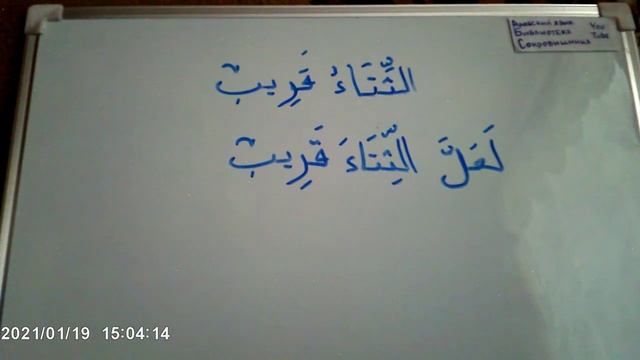 Арабский язык You
Библиотека Tube
Сокровищница
الشِّتَاءُ قَرِيبٌ
لَعَلَّ الشِّتَاءَ قَرِيبٌ
2021/01/19 15:04:14